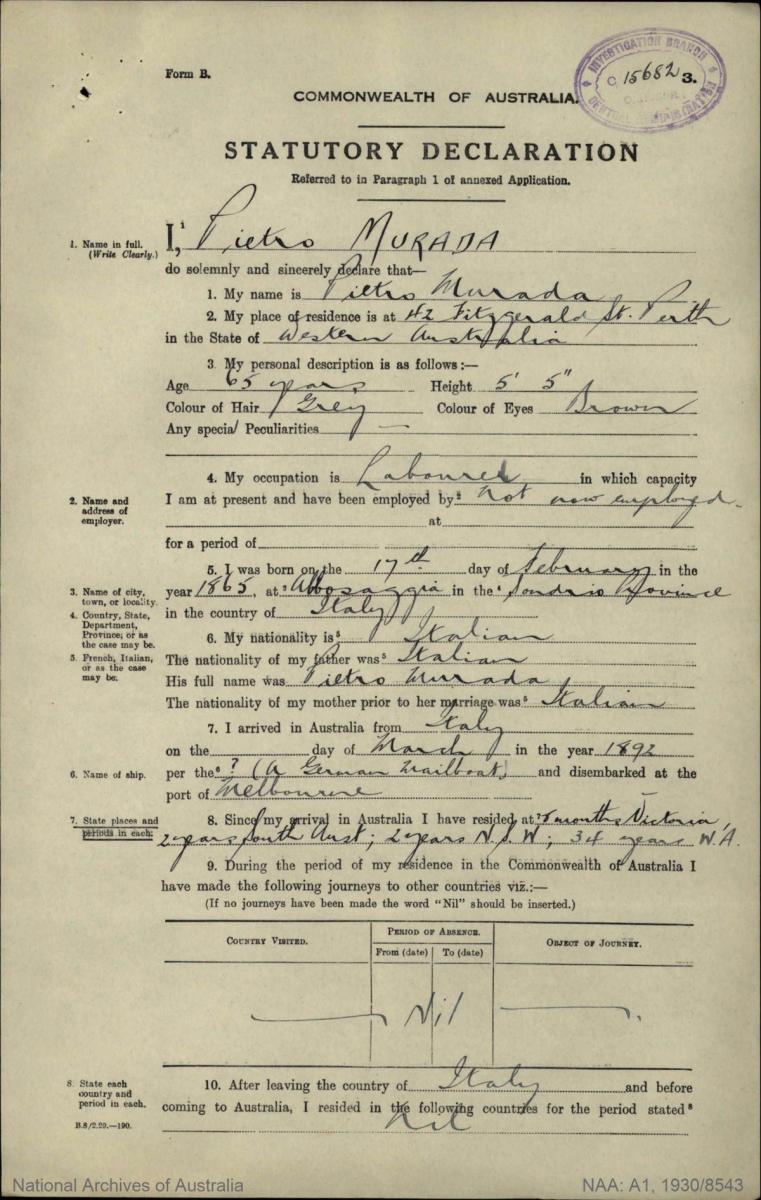 Form B.
INVESTIGATION BRANCH
C 15682 3.
COMMONWEALTH OF AUSTRALIA.
STATUTORY DECLARATION
Referred to in Paragraph 1 of annexed Application.
1. Name in full.
(Write Clearly.)
I,¹ Pietro MURADA
do solemnly and sincerely declare that—
1. My name is Pietro Murada
2. My place of residence is at 42 Fitzgerald St. Perth
in the State of Western Australia
3. My personal description is as follows:—
Age 65 years Height 5' 5"
Colour of Hair Grey Colour of Eyes Brown
Any special Peculiarities —
4. My occupation is Labourer in which capacity
2. Name and
address of
employer.
I am at present and have been employed by² Not now employed.
at
for a period of
5. I was born on the 17th day of February in the
3. Name of city,
town, or locality.
year 1865, at³ Albosaggia in the⁴ Sondrio Province
4. Country, State,
Department,
Province; or as
the case may be.
in the country of Italy
6. My nationality is⁵ Italian
5. French, Italian,
or as the case
may be.
The nationality of my father was⁵ Italian
His full name was Pietro Murada
The nationality of my mother prior to her marriage was⁵ Italian
7. I arrived in Australia from Italy
on the day of March in the year 1892
6. Name of ship.
per the⁶ ? (A German Mailboat) and disembarked at the
port of Melbourne
7. State places and
periods in each.
8. Since my arrival in Australia I have resided at⁷ months Victoria,
2 years South Aust; 2 years N.S.W; 34 years W.A.
9. During the period of my residence in the Commonwealth of Australia I
have made the following journeys to other countries viz.:—
(If no journeys have been made the word "Nil" should be inserted.)
COUNTRY VISITED. PERIOD OF ABSENCE. OBJECT OF JOURNEY.
From (date) To (date)
— Nil —.
8. State each
country and
period in each.
10. After leaving the country of Italy and before
coming to Australia, I resided in the following countries for the period stated⁸
Nil
B.8/2.29.—190.
National Archives of Australia
NAA: A1, 1930/8543